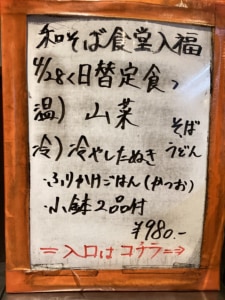 和そば食堂入福
4/28く日替定食っ
温) 山菜
そば
冷) 冷やしたぬき うどん
・ふりかけごはん(かつお)
・小鉢2品付
¥980.-
=入口はコチラ=⇒